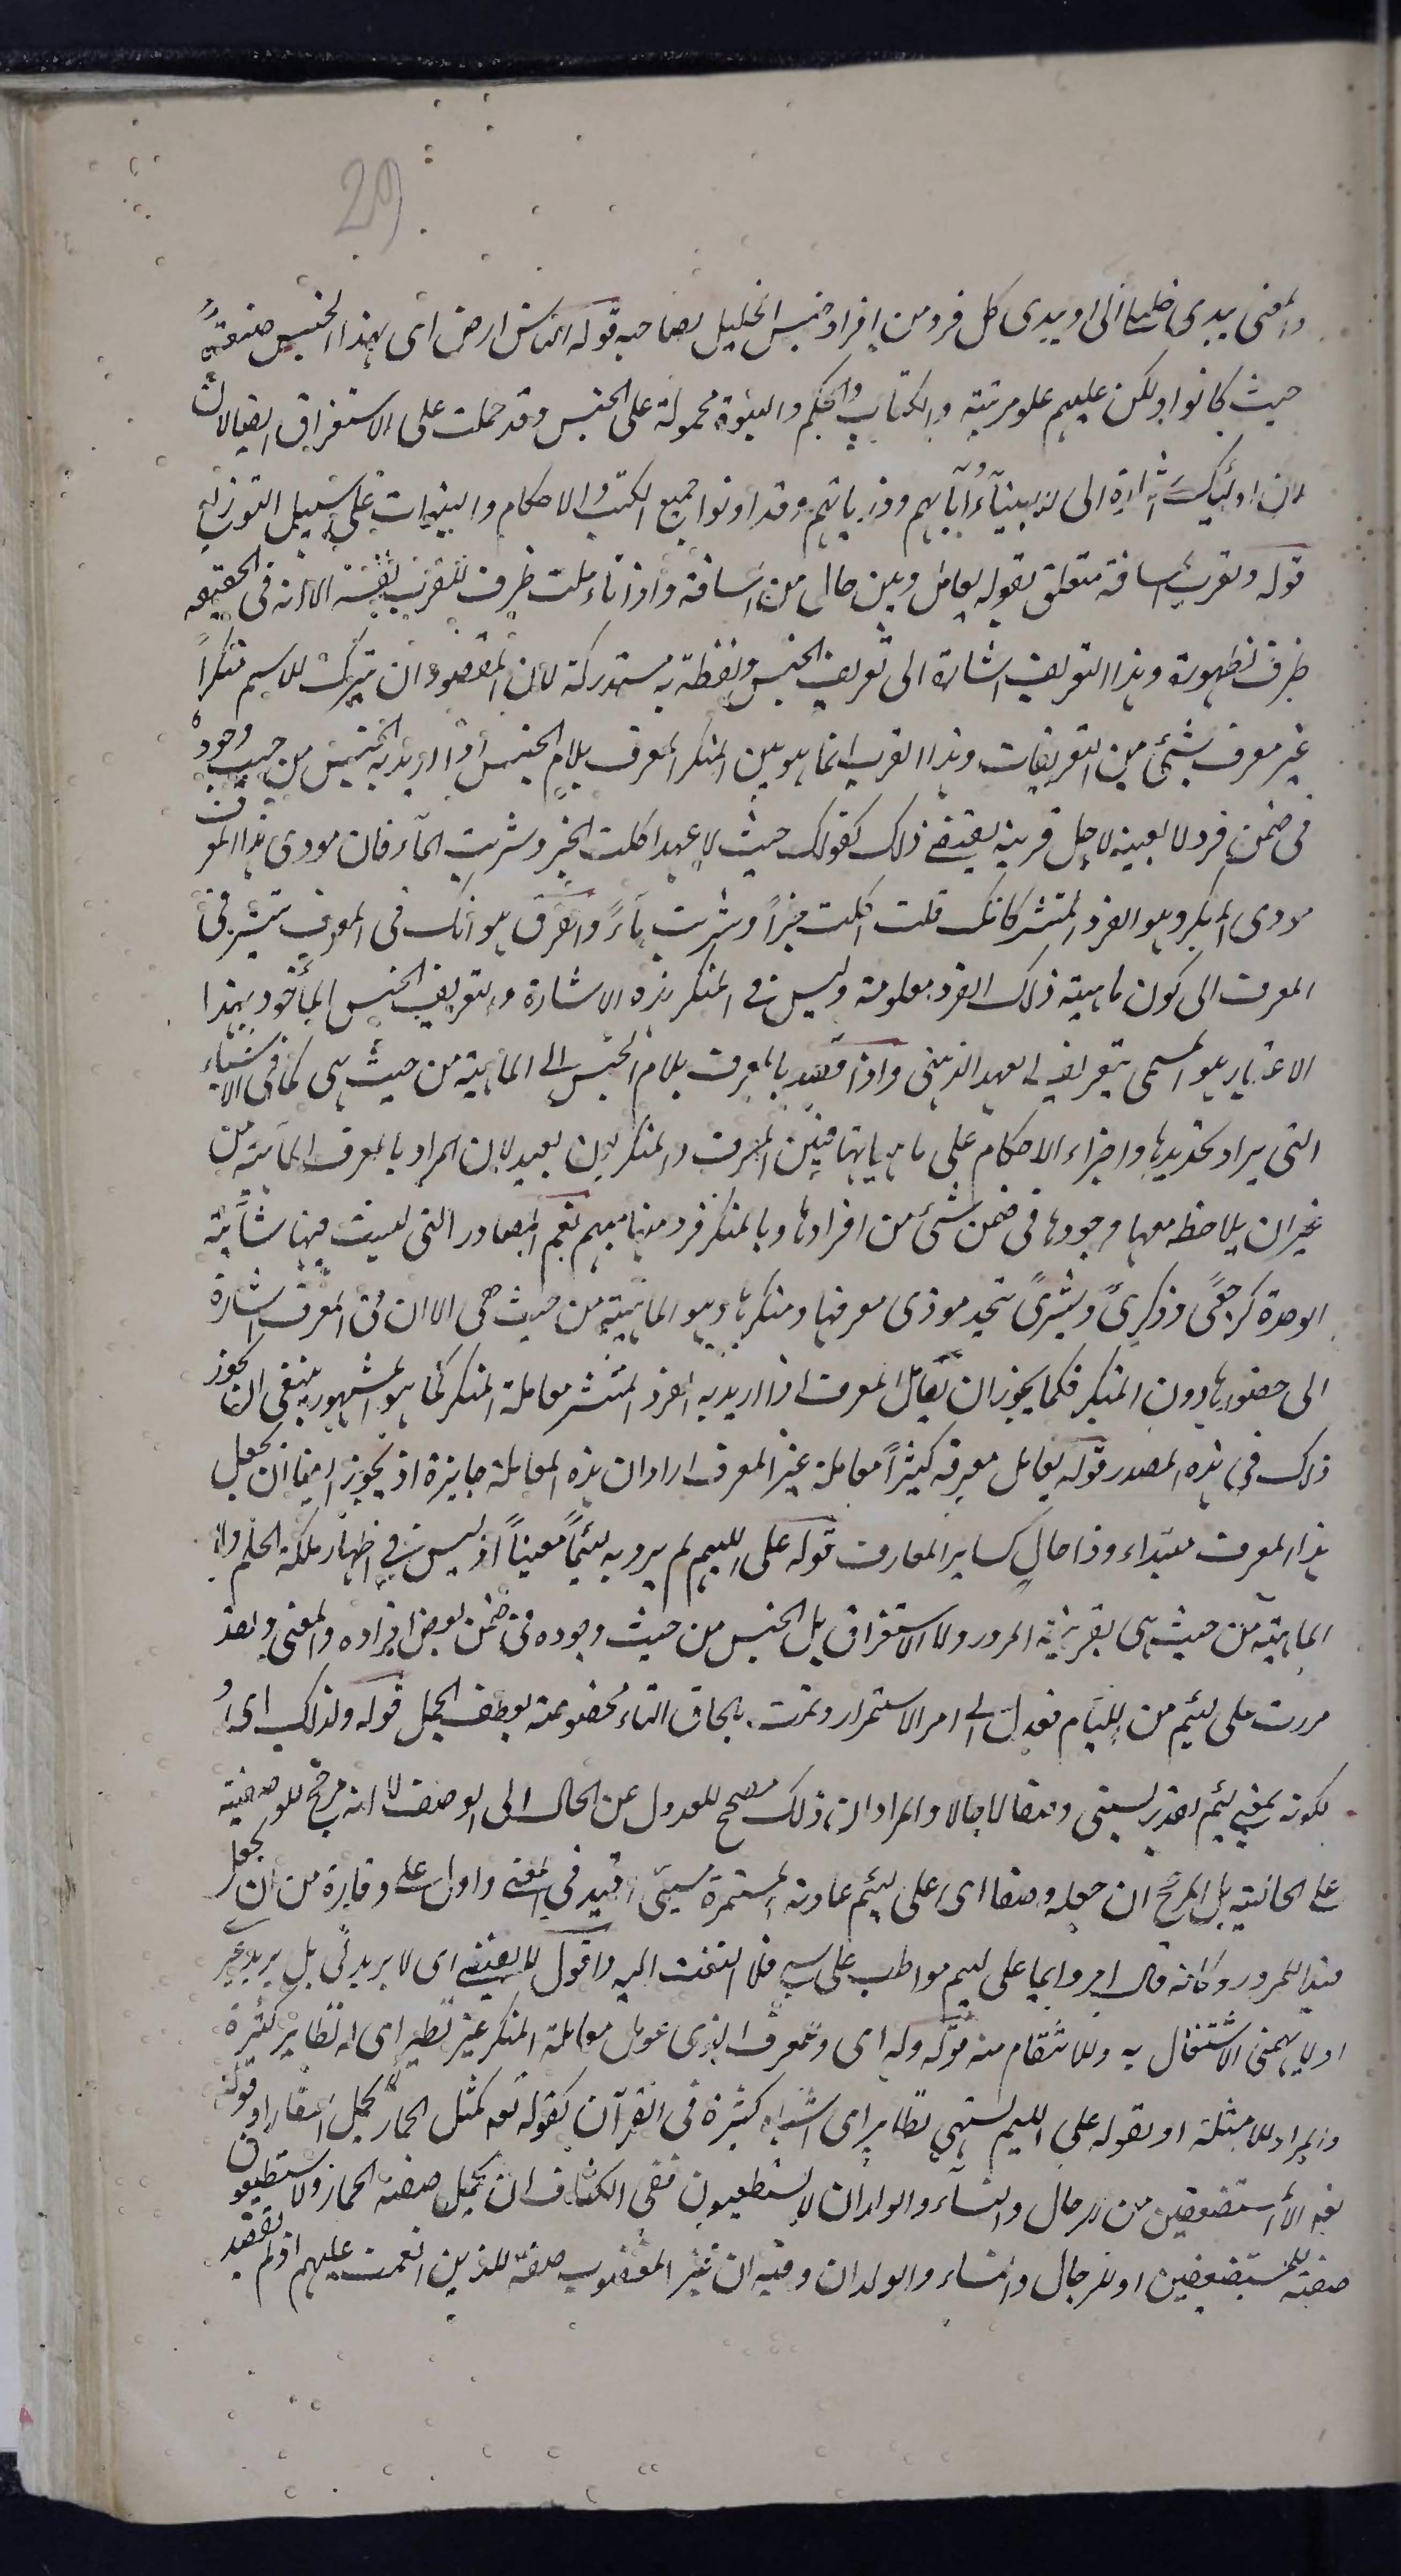 29
والمعنى يبدى خليلا الى او يبدى كل فرد من افراد جنس الخليل لصاحبه قوله الناس ارض اى بهذا الجنس
حيث كانوا ولكن عليهم علو مرتبته والكتاب والحكم والنبوة محمولة على الجنس وقد حملت على الاستغراق ايضا لان
لان اولئك اشارة الى الانبيآء وآبآئهم وذرياتهم وقد اوتوا جميع الكتب والاحكام والنبوات على سبيل التوزيع
قوله ولقرب المسافة متعلق بقوله يعامل وبين حال من المسافة واذا تأملت ظرف للقرب نفسه الا انه فى الحقيقه
ظرف لظهوره وهذا التعريف اشارة الى تعريف الجنس ولفظة به مستدركة لان المقصود ان يترك الاسم منكراً
غير معرف بشئ من التعريفات وهذا القرب انما هو بين المنكر والمعرف بلام الجنس اذا اريد به الجنس من حيث وجوده
فى ضمن فرد لا بعينه لاجل قرينة تقتضى ذلك كقولك حيث لا عهد اكلت الخبز وشربت المآء فان مودى هذا المعرف
مودى المنكر وهو الفرد المنتشر كانك قلت اكلت خبزاً وشربت مآءً والفرق هو انك فى المعرف تشير فى
المعرف الى كون ماهيته ذلك الفرد معلومة وليس فى المنكر هذه الاشارة وتعريف الجنس المأخوذ بهذا
الاعتبار هو المسمى بتعريف العهد الذهنى واذا قصد بالمعرف بلام الجنس الى الماهية من حيث هى كما فى الاشياء
التى يراد تحديدها واجراء الاحكام على ماهياتها فبين المعرف والمنكر بون بعيد لان المراد بالمعرف الماهية من
غير ان يلاحظ معها وجودها فى ضمن شئ من افرادها وبالمنكر فرد منها مبهم نعم المصادر التى ليست فيها شآئبة
الوحدة كرجعى وذكرى وبشرى يتحد مودى معرفها ومنكرها وهو الماهية من حيث هى الا ان فى المعرف اشارة
الى حضورها دون المنكر فكما يجوز ان يعامل المعرف اذا اريد به الفرد المنتشر معاملة المنكر كما هو المشهور ينبغى ان يجوز
ذلك فى هذه المصدر قوله يعامل معرفه كثيراً معاملة غير المعرف اراد ان هذه المعاملة جايزة اذ يجوز ايضا ان يجعل
هذا المعرف مبتداء وذا حال كساير المعارف قوله على اللئيم لم يرد به لئيماً معيناً اذ ليس فى اظهار ملكة الحلم ولا
الماهية من حيث هى بقرينة المرور ولا الاستغراق بل الجنس من حيث وجوده فى ضمن بعض افراده والمعنى ولقد
مررت على لئيم من اللئام فعدل الى امر الاستمرار وثمت بالحاق التاء مخصوصة بعطف الجمل قوله ولذلك اى
لكونه بمعنى لئيم تقدير يسبنى وصفا لا حالا والمراد ان ذلك مصحح للعدول عن الحال الى الوصف لا انه مرجح للوصفية
على الحالية بل المرجح ان جعله وصفا اى على لئيم عادته المستمرة سبى اقيد فى المعنى وادل على وقاره من ان يجعل
قيدا للمرور وكانه قال امر دايما على لئيم مواظب على سبى فلا التفت اليه واقول لا يعنينى اى لا يريدنى بل يريد غيرى
او لا يهمنى الاشتغال به وللانتقام منه قوله وله اى وللمعرف الذى عومل معاملة المنكر غير نظير اى له نظاير كثيرة
والمراد للامثلة او لقوله على اللئيم يسبنى نظاير اى اشباه كثيرة فى القرآن كقوله تعه كمثل الحمار يحمل اسفارا وقوله
تعه الا المستضعفين من الرجال والنسآء والولدان لا يستطيعون ففى الكشاف ان يحمل صفة الحمار ولا يستطيعون
صفة للمستضعفين او للرجال والنساء والولدان وفيه ان غير المغضوب صفة للذين انعمت عليهم اذ لم يقصد